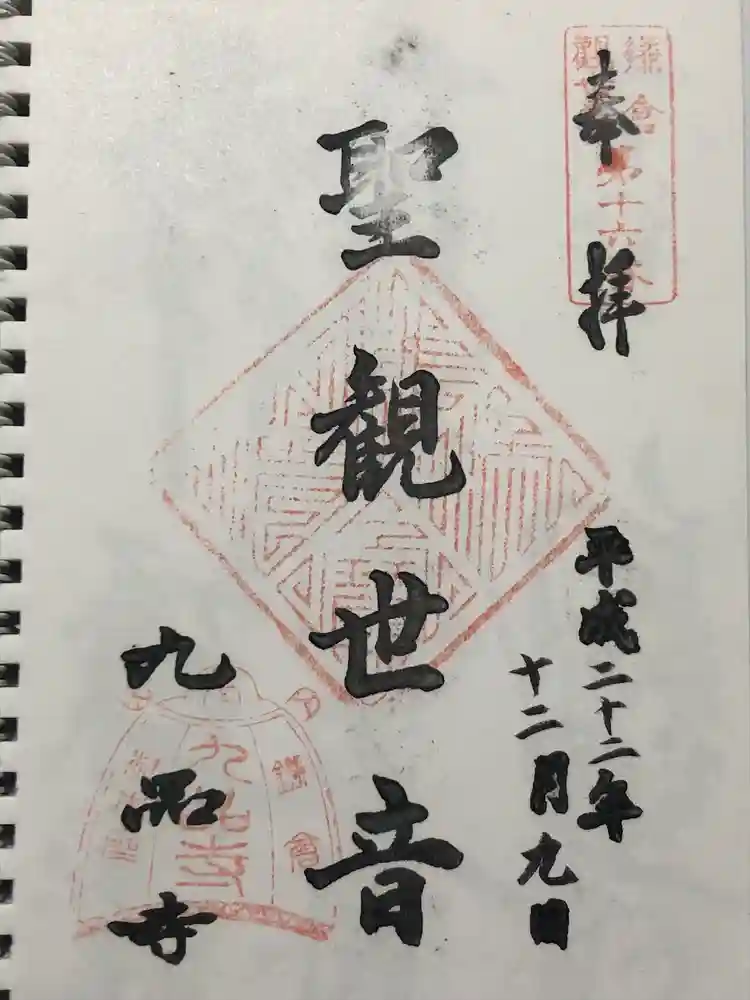 奉拝
鎌倉
観世音
第十六番
平成二十二年
十二月九日
聖観世音
九品寺
鎌倉
九品寺